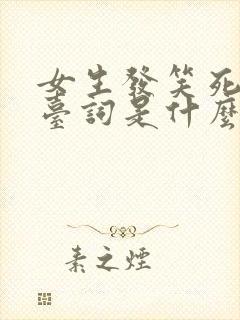 女生發笑死
臺詞是什麼
素之煙